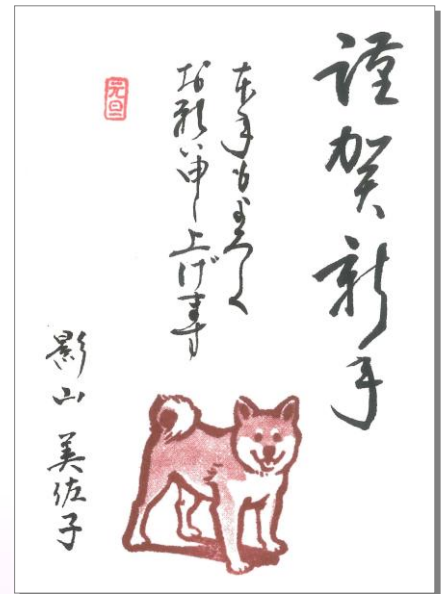 謹賀新年
本年もよろしく
お願い申し上げます
元旦
影山 美佐子